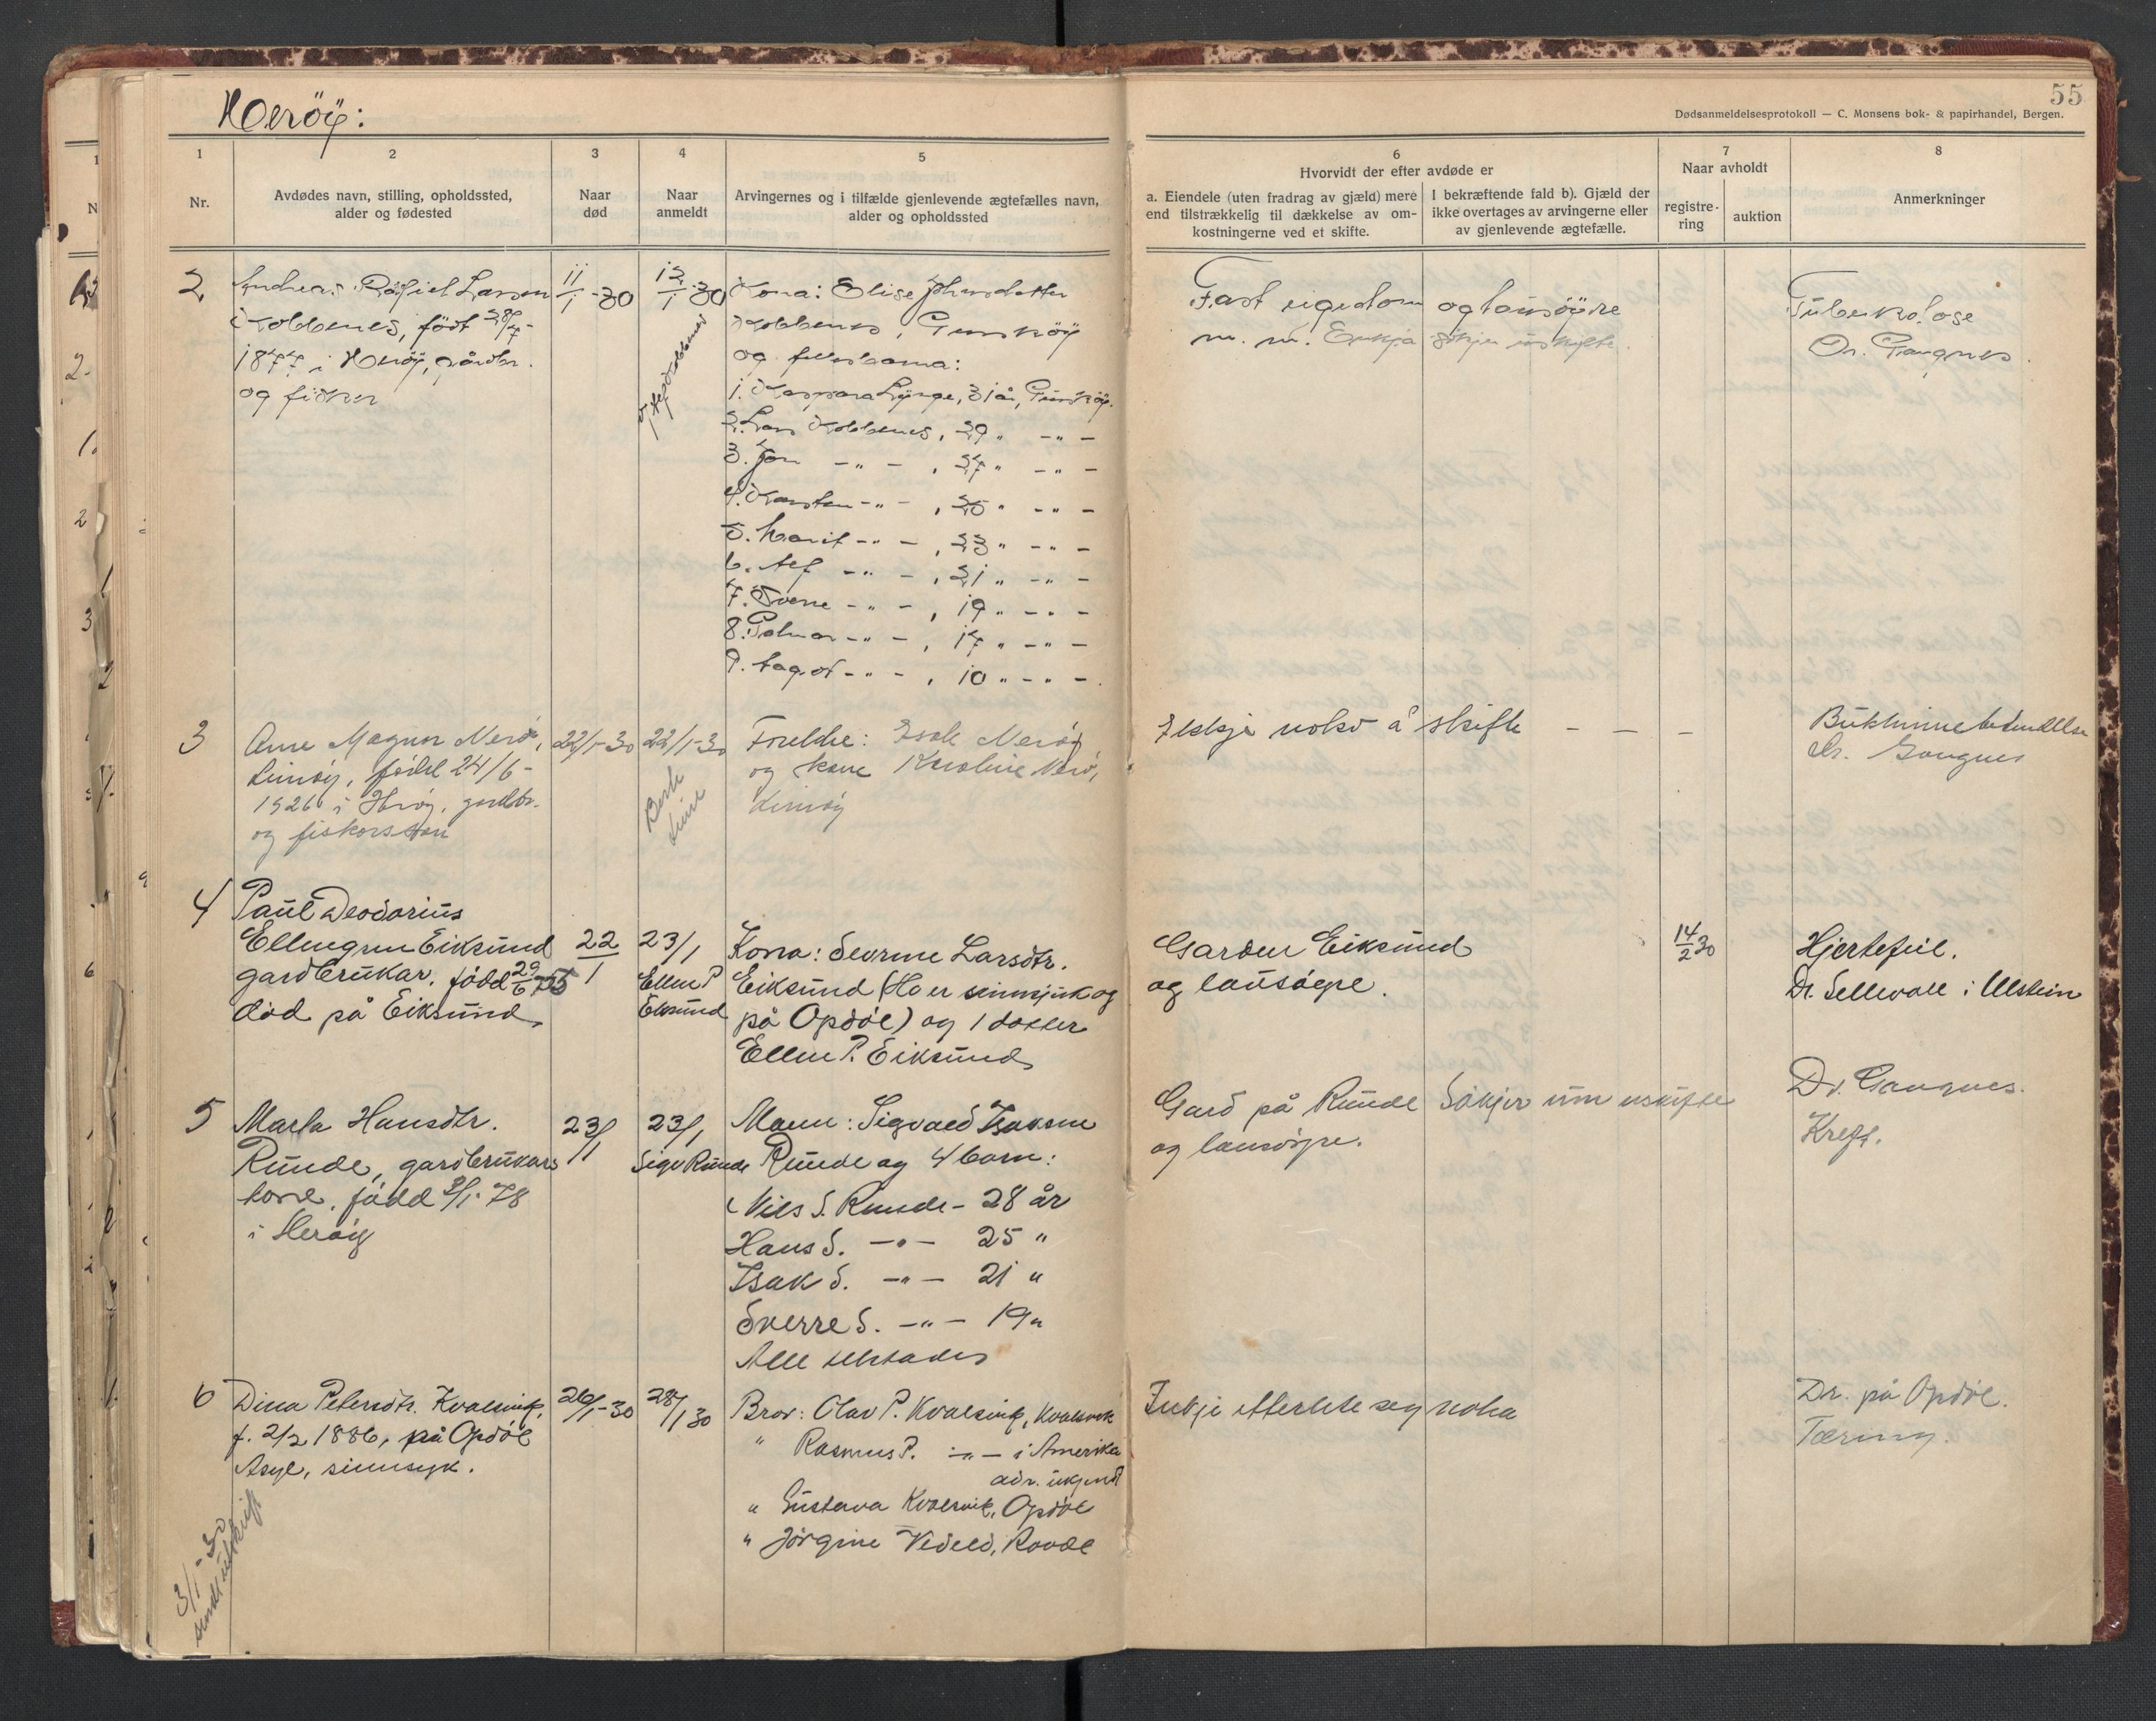 Herøy:
55
Dødsanmeldelsesprotokoll — C. Monsens bok- & papirhandel, Bergen.
1
Nr.
2
Avdødes navn, stilling, opholdssted,
alder og fødested
3
Naar
død
4
Naar
anmeldt
5
Arvingernes og i tilfælde gjenlevende ægtefælles navn,
alder og opholdssted
6
Hvorvidt der efter avdøde er
a. Eiendele (uten fradrag av gjæld) mere
end tilstrækkelig til dækkelse av om-
kostningerne ved et skifte.
I bekræftende fald b). Gjæld der
ikke overtages av arvingerne eller
av gjenlevende ægtefælle.
7
Naar avholdt
registre-
ring
auktion
8
Anmerkninger
2
Andreas Larsen
Kobbenes, født 28/7-
1877 i Herøy, gårdbr.
og fisker
11/1-30
12/1-30
Kona: Elise Johnsdatter
Kobbenes, Gurskøy
og felesborna:
1. Kaspara Lynge, 31 år, Gurskøy.
2. Lars Kobbenes, 29 " -"-
3. Jon -"-, 27 " -"-
4. Karsten -"-, 25 " -"-
5. Marit -"-, 23 " -"-
6. Alf -"-, 21 " -"-
7. Sverre -"-, 19 " -"-
8. -"-, 17 " -"-
9. Aagot -"-, 10 " -"-
Fast eigedom og lausøyre
m. m. Enkja søkjer uskifte.
Tuberkolose
Dr. Gangnes.
3
Arne Magnus Nerø,
Leinøy, født 24/6-
1926 i Herøy, gardbr.
og fiskarsson
22/1-30
22/1-30
Foreldre: Isak Nerøy
og kone Karoline Nerø,
Leinøy
Ikkje noko å skifte - - -
Bukhinnebetendelse
Dr. Gangnes
4
Paul Deodorius
Ellingsen Eiksund
gardbrukar. født 29/6 75
død på Eiksund
22/1
23/1
Ellen P
Eiksund
Kona: Severine Larsdtr.
Eiksund (Ho er sinnsjuk og
på Opdøl) og 1 dotter
Ellen P. Eiksund
Garden Eiksund
og lausøyre.
14/2 30
Hjertefeil.
Dr. Sellevoll i Ulstein
5
Marta Hansdtr.
Runde, gardbrukars
kone, fødd 3/1-78
i Herøy
23/1
23/1
Sigv Runde
Mann: Sigvald Isaksen
Runde og 4 born:
Nils S. Runde - 28 år
Hans S. -"- 25 "
Isak S. -"- 21 "
Sverre S. -"- 19 "
Alle tilstades
Gard på Runde Søkjer um uskifte
og lausøyre.
Dr. Gangnes.
Kreft.
6
Dina Petersdtr. Kvalsvik,
f. 2/2 1886, på Opdøl
Asyl, sinnsyk.
26/1-30
28/1 30
Bror: Olav P. Kvalsvik, Kvalsvik
" Rasmus P. -"- i Amerika
adr. ukjend
" Gustava Kvalsvik, Opdøl
" Jørgine Vedeld, Rovde
Inkje etterlete seg noko
Dr. på Opdøl.
Tæring.
3/1-30
sendt utskrift